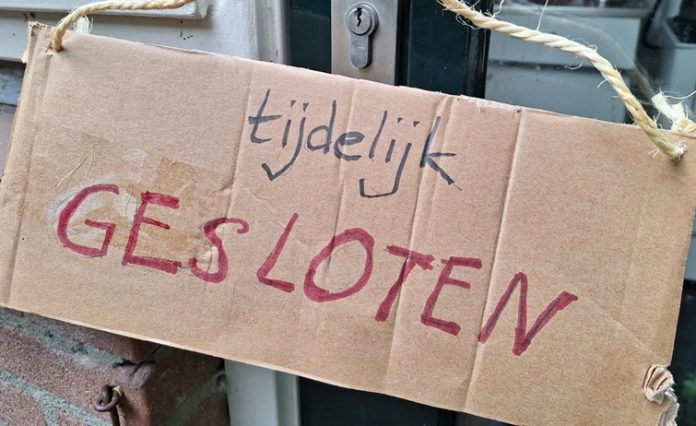 tijdelijk
GESLOTEN